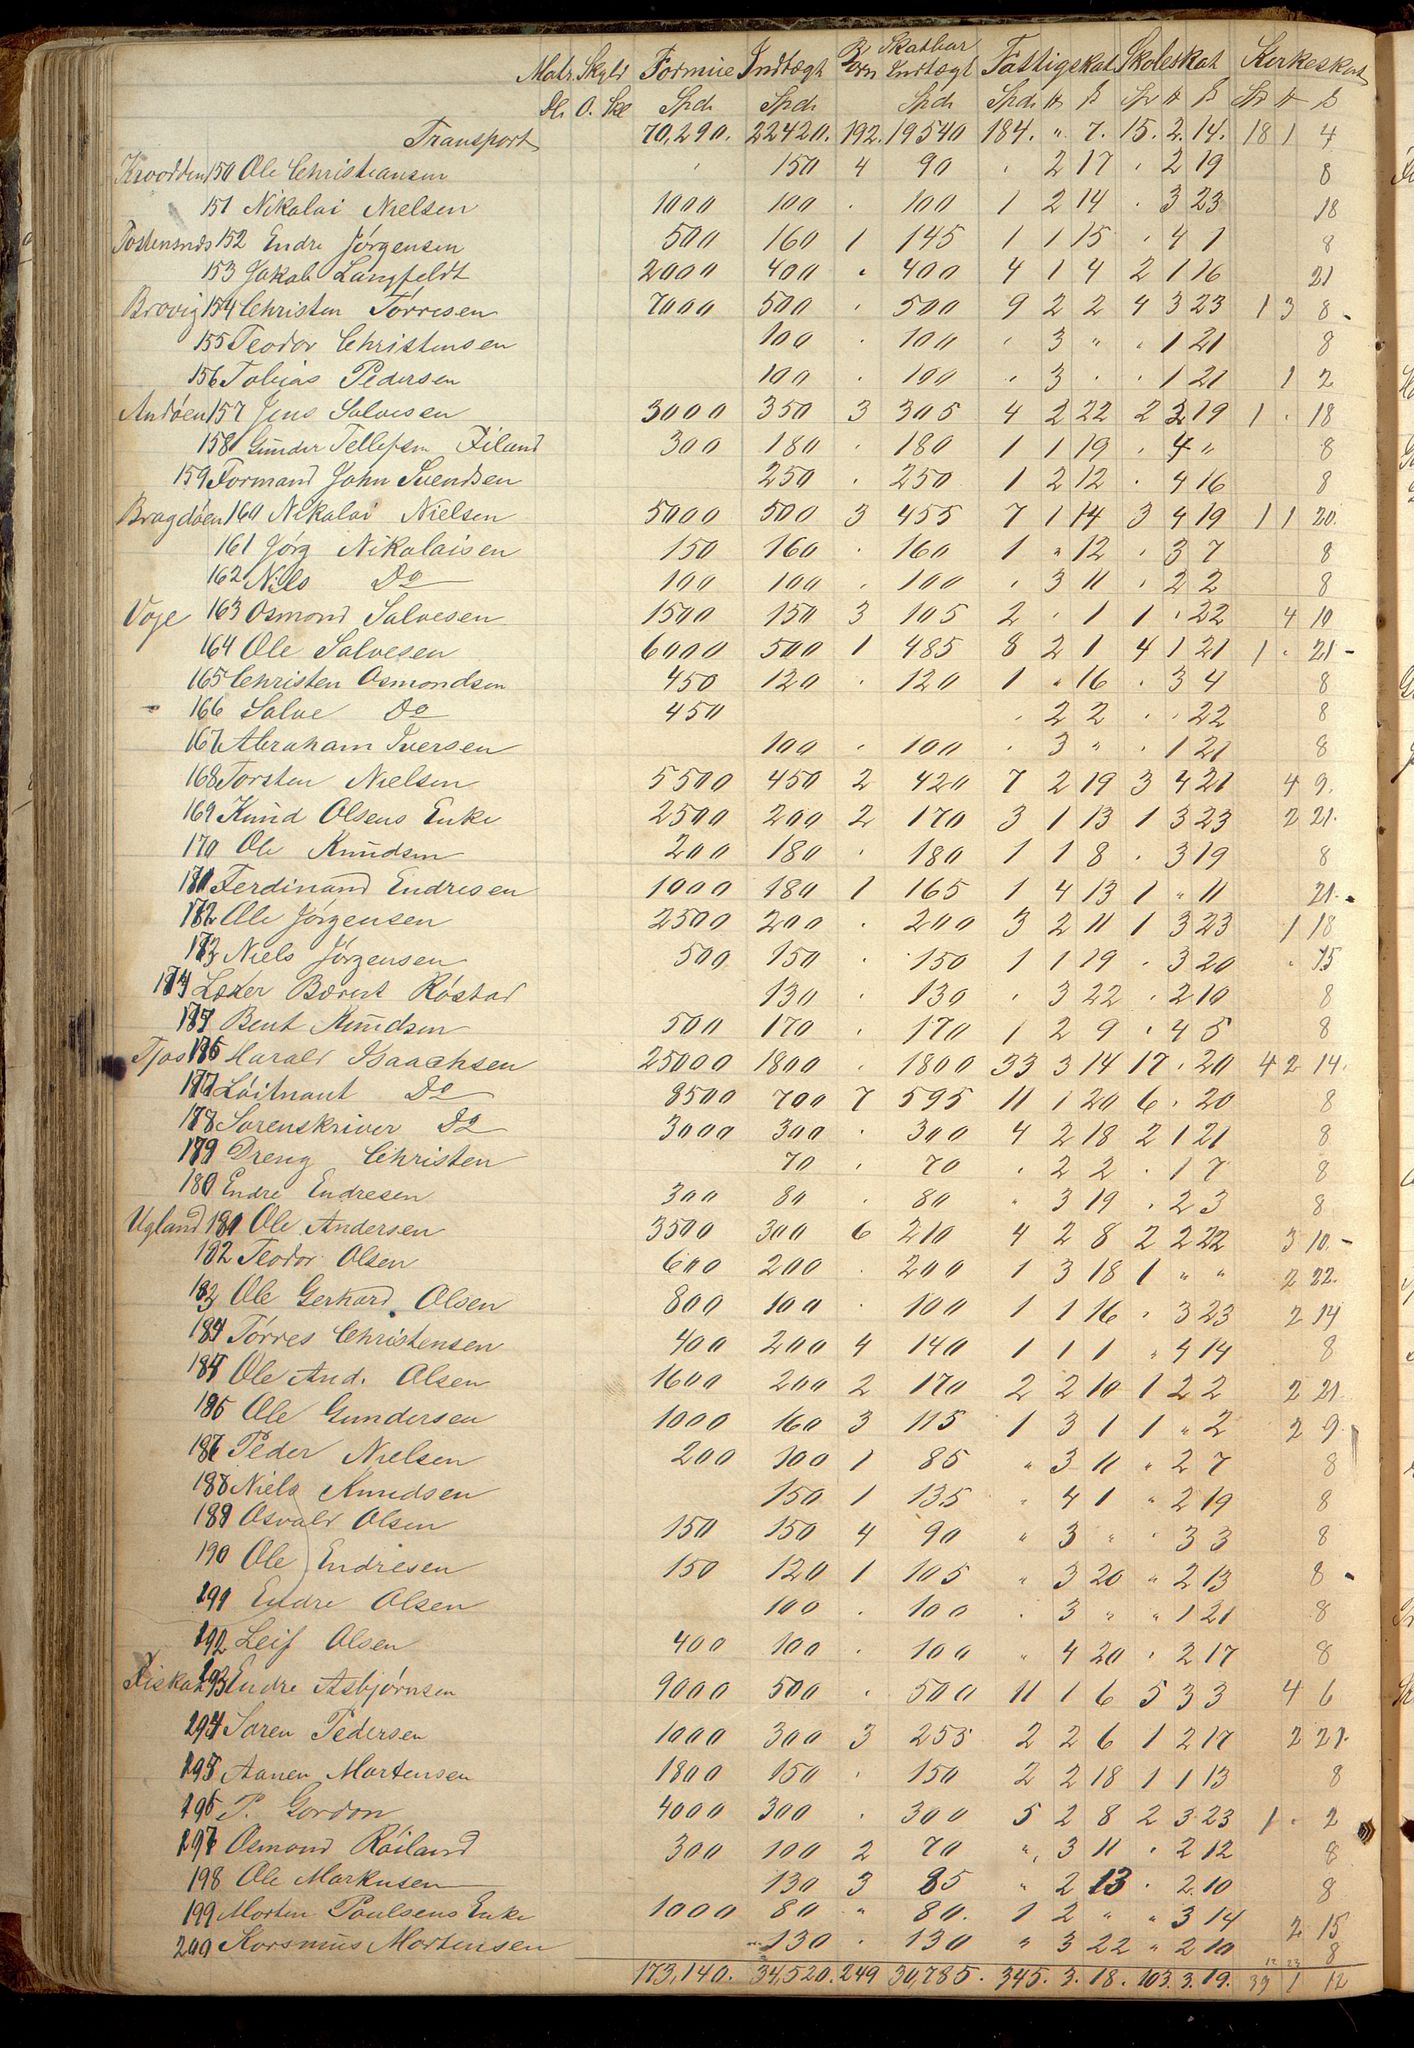 Matr. Skyld Formue Indtægt Børn Skatbar Indtægt Fattigskat Skoleskat Kirkeskat
Dl. O. Skl Spd. Spd. Spd. Spd. ℔ ß Sp ℔ ß Sp ℔ ß
Transport 70,290. 22420. 192. 19540 184. " 7. 15. 2. 14. 18 1 4
Kroodden 150 Ole Christiansen 150 4 90 . 2 17 . 2 19 8
151 Nikolai Nielsen 1000 100 . 100 1 2 14 . 3 23 18
152 Endre Jørgensen 500 160 1 145 1 1 15 . 4 1 8
153 Jakob Langfeldt 2000 400 . 400 4 1 4 2 1 16 21
Brovig 154 Christen Tørresen 7000 500 . 500 9 2 2 4 3 23 1 3 8
155 Teodor Christensen 100 . 100 . 3 " . 1 21 8
156 Tobias Pedersen 100 . 100 . 3 . . 1 21 1 2
Andøen 157 Jens Salvesen 3000 350 3 305 4 2 22 2 2 19 1 . 18
158 Gunder Tellefsen 300 180 . 180 1 1 19 . 4 " 8
159 Formand John Svendsen 250 . 250 1 2 12 . 4 16 8
Bragdøen 160 Nikolai Nielsen 5000 500 3 455 7 1 14 3 4 19 1 1 20
161 Jørg Nikolaisen 150 160 . 160 1 " 12 . 3 7 8
162 Niels Do 100 100 . 100 . 3 11 . 2 2 8
Voje 163 Osmond Salvesen 1500 150 3 105 2 . 1 1 . 22 4 10
164 Ole Salvesen 6000 500 1 485 8 2 1 4 1 21 1 . 21
165 Christen Osmondsen 450 120 . 120 1 " 16 . 3 4 8
166 Salve Do 450 . 2 2 . . 22 8
167 Abraham Iversen 100 . 100 . 3 " . 1 21 8
168 Torsten Nielsen 5500 450 2 420 7 2 19 3 4 21 4 9
169 Knud Olsens Enke 2500 200 2 170 3 1 13 1 3 23 2 21
170 Ole Knudsen 200 180 . 180 1 1 8 . 3 19 8
171 Ferdinand Endresen 1000 180 1 165 1 4 13 1 " 11 21
172 Ole Jørgensen 2500 200 . 200 3 2 11 1 3 23 1 18
173 Niels Jørgensen 500 150 . 150 1 1 19 . 3 20 . 15
174 Bærent Røstad 130 . 130 . 3 22 . 2 10 8
175 Bent Knudsen 500 170 . 170 1 2 9 . 4 5 8
Tjos 176 Harald Isaachsen 25000 1800 . 1800 33 3 14 17 . 20 4 2 14
177 Løitnant Do 8500 700 7 595 11 1 20 6 . 20 8
178 Sorenskriver Do 3000 300 . 300 4 2 18 2 1 21 8
179 Dreng Christen 70 . 70 . 2 2 . 1 7 8
180 Endre Endresen 300 80 . 80 " 3 19 . 2 3 8
Ugland 181 Ole Andersen 3500 300 6 210 4 2 8 2 2 22 3 10
182 Teodor Olsen 600 200 . 200 1 3 18 1 " " 2 22
183 Ole Gerhard Olsen 800 100 . 100 1 1 16 . 3 23 2 14
184 Tørres Christensen 400 200 4 140 1 1 1 " 4 14 8
184 Ole And. Olsen 1600 200 2 170 2 2 10 1 2 2 2 21
185 Ole Gundersen 1000 160 3 115 1 3 1 1 " 2 2 9
186 Peder Nielsen 200 100 1 85 " 3 11 " 2 7 8
188 Niels Knudsen 150 1 135 " 4 1 " 2 19 8
189 Osvald Olsen 150 150 4 90 " 3 " . 3 3 8
190 Ole Endresen 150 120 1 105 " 3 20 " 2 13 8
191 Endre Olsen 100 . 100 . 3 " " 1 21 8
192 Leif Olsen 400 100 . 100 " 4 20 . 2 17 8
Fiskaa 193 Endre Asbjørnsen 9000 500 . 500 11 1 6 5 3 3 4 6
194 Soren Pedersen 1000 300 3 255 2 2 6 1 2 17 2 21
195 Aanen Mortensen 1800 150 . 150 2 2 18 1 1 13 8
196 P. Gordon 4000 300 . 300 5 2 8 2 3 23 1 . 2
197 Osmond Røiland 300 100 2 70 " 3 11 . 2 12 8
198 Ole Markusen 130 3 85 " 2 13 . 2 10 8
199 Morten Poulsens Enke 1000 80 " 80. 1 2 " " 3 14 2 15
200 Korsmus Mortensen 130 . 130 " 3 22 " 2 10 8
173,140. 34,520. 249 30,785. 345. 3. 18. 103. 3. 19. 33 1 12